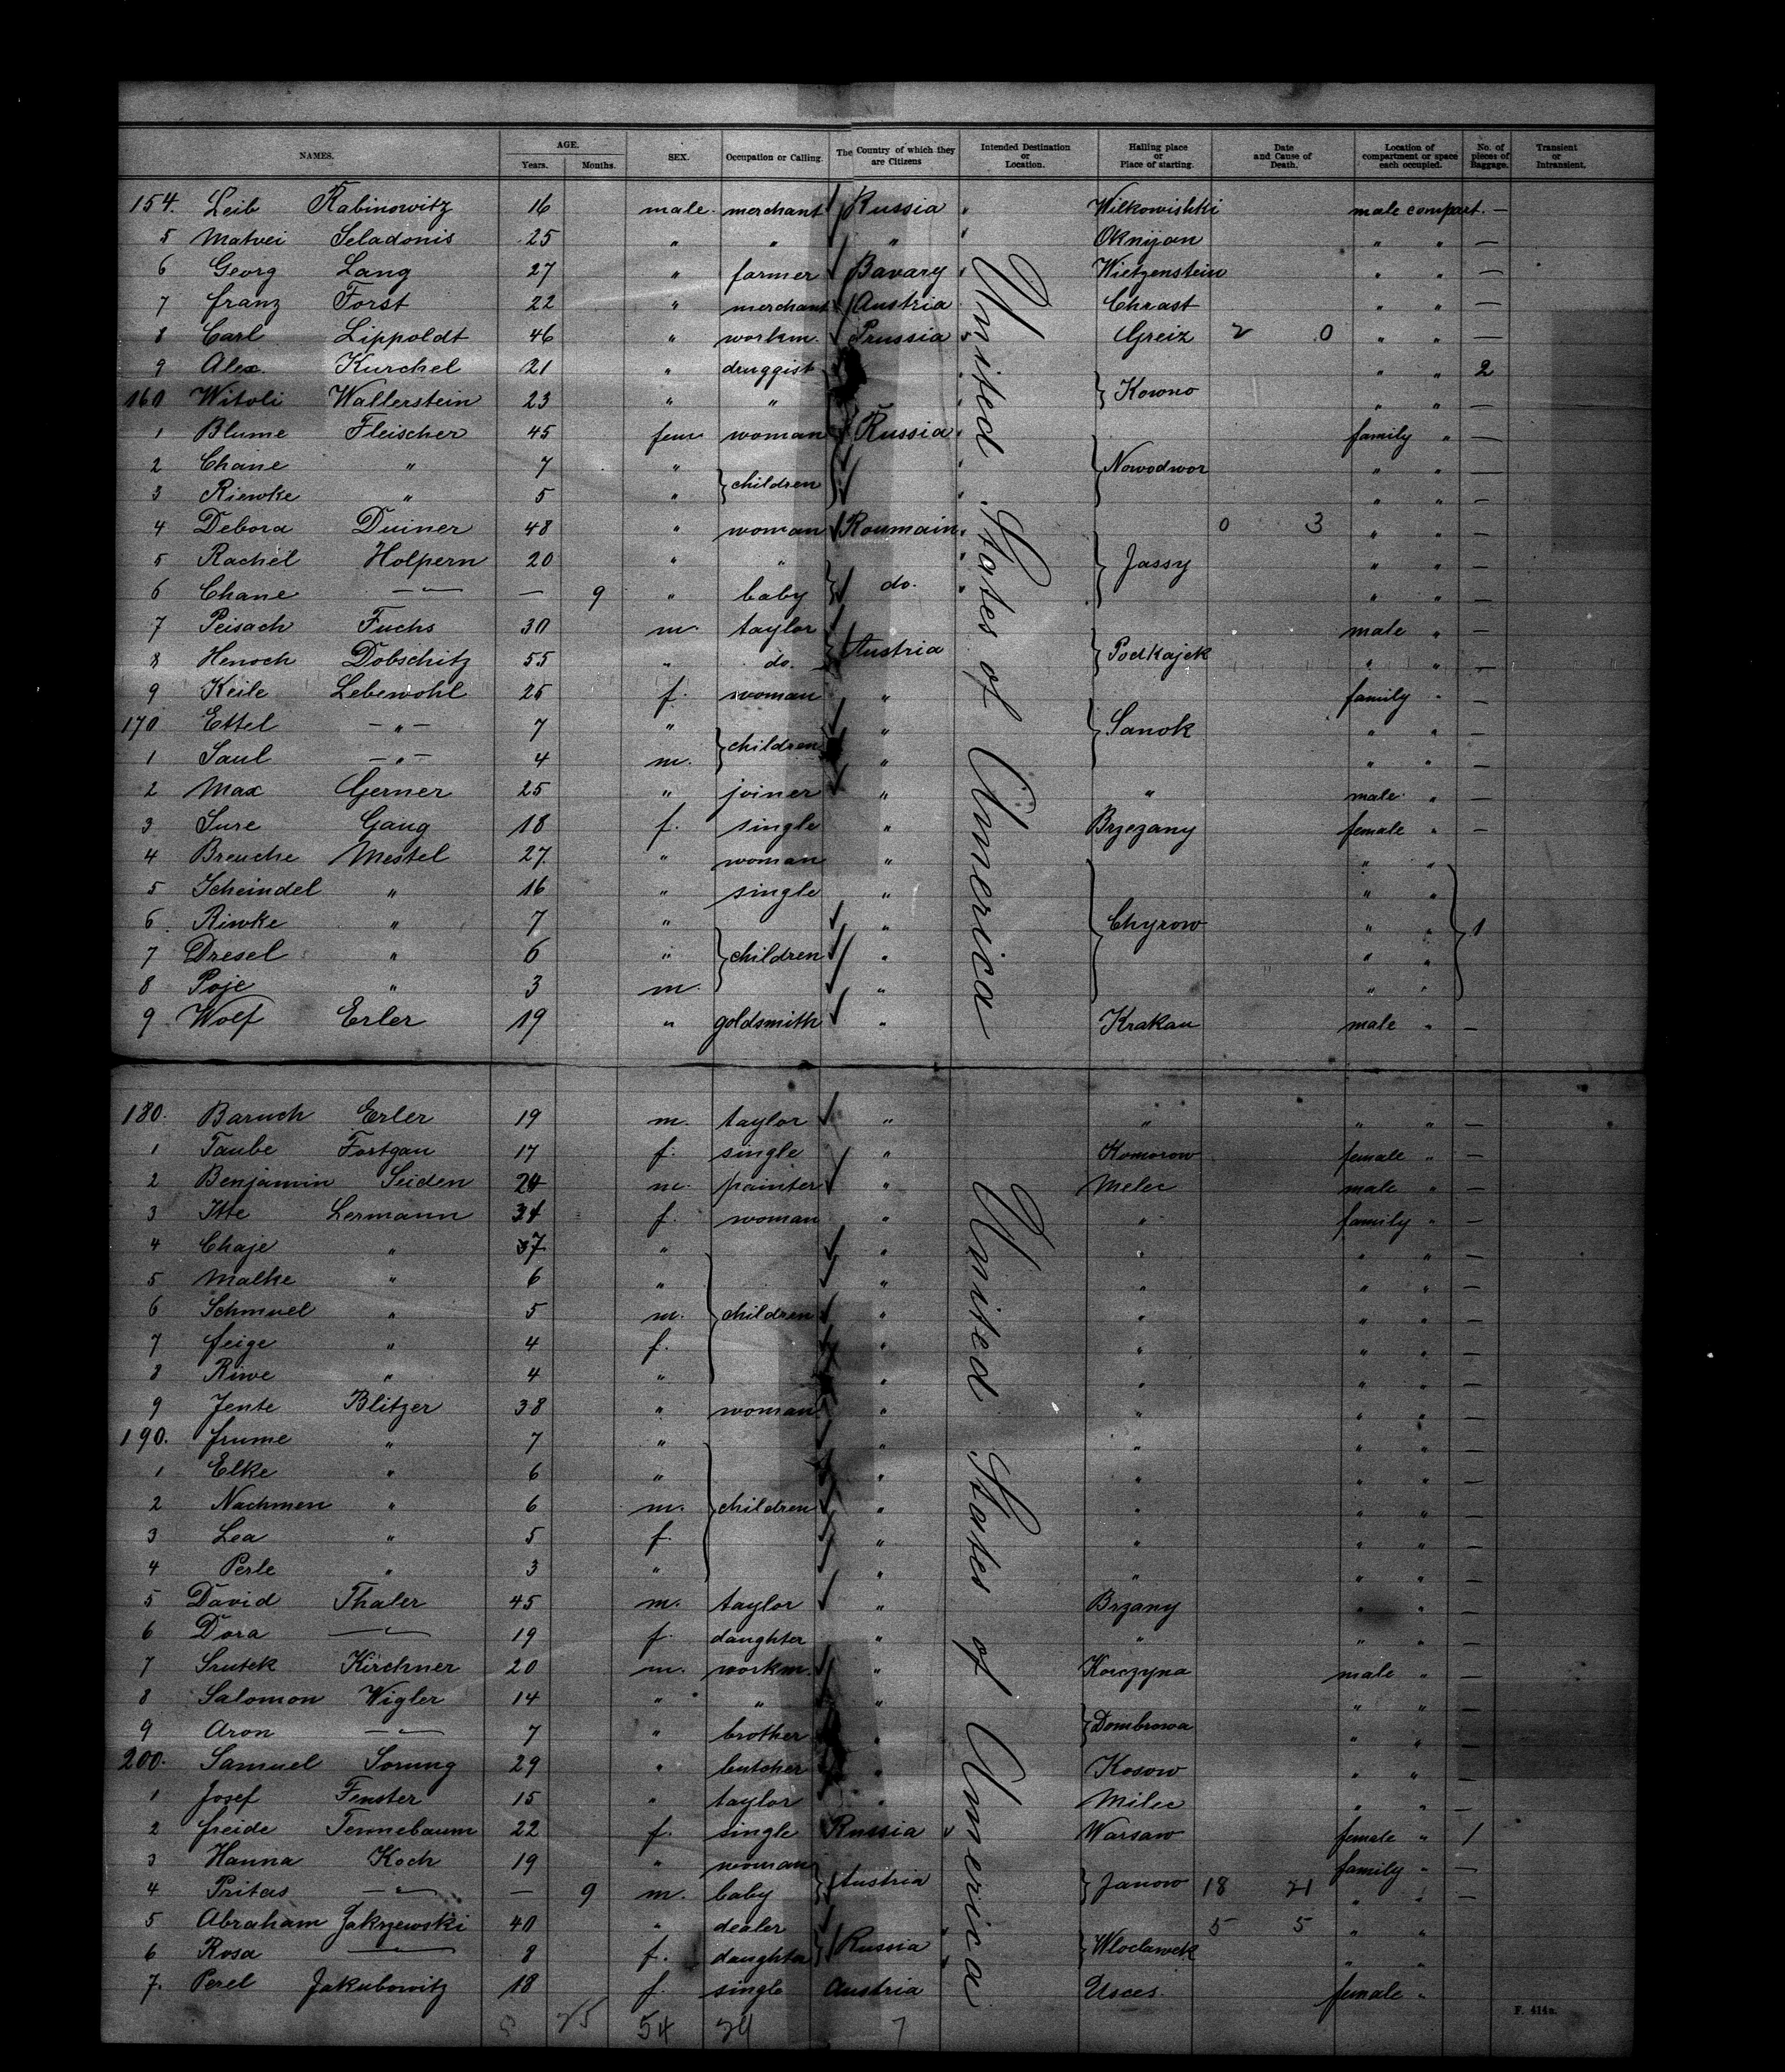 NAMES. AGE. Years. Months. SEX. Occupation or Calling. The Country of which they are Citizens Intended Destination or Location. Hailing place or Place of starting. Date and Cause of Death. Location of compartment or space each occupied. No. of pieces of Baggage. Transient or Intransient.
154. Leib Rabinowitz 16 male. merchant Russia Wilkowishki male compart. —
5 Matvei Seladonis 25 " " " Oknijan " " —
6 Georg Lang 27 " farmer Bavary Wietzenstein " " —
7 Franz Forst 22 " merchant Austria Chrast " " —
8 Carl Lippoldt 46 " workm. Prussia Greiz 2 0 " " —
9 Alex. Kurchel 21 " druggist " " 2
160 Witoli Wallerstein 23 " " } Kowno " " —
1 Blume Fleischer 45 fem woman Russia family " —
2 Chane " 7 " } Nowodwor " " —
3 Riewke " 5 " } children " " —
4 Debora Duiner 48 " woman Roumain. 0 3 " " —
5 Rachel Holpern 20 " " } Jassy " " —
6 Chane —"— — 9 " baby do. " " —
7 Peisach Fuchs 30 m. taylor male " —
8 Henoch Dobschitz 55 " do. Austria } Podkajek " " —
9 Keile Lebewohl 25 f. woman " family " —
170 Ettel —"— 7 " " } Sanok " " —
1 Saul —"— 4 m. } children " " " —
2 Max Gerner 25 " joiner " " male " —
3 Sure Gang 18 f. single " Brzezany female " —
4 Breuche Mestel 27 " woman " " "
5 Scheindel " 16 " single " " "
6 Riwke " 7 " " } Chyrow " " } 1
7 Dresel " 6 " } children " " "
8 Poje " 3 m. " " "
9 Wolf Erler 19 " goldsmith " Krakau male " —
180. Baruch Erler 19 m. taylor " " " " —
1 Taube Fortgau 17 f. single " Komorow female " —
2 Benjamin Seiden 24 m. painter " Melec male " —
3 Itte Lermann 34 f. woman " " family " —
4 Chaje " 37 " " " " " —
5 Malke " 6 " " " " " —
6 Schmuel " 5 m. } children " " " " —
7 Feige " 4 f. " " " " —
8 Riwe " 4 " " " " " —
9 Jente Blitzer 38 " woman " " " " —
190. Frume " 7 " " " " " —
1 Elke " 6 " " " " " —
2 Nachmen " 6 m. } children " " " " —
3 Lea " 5 f. " " " " —
4 Perle " 3 " " " " " —
5 David Thaler 45 m. taylor " Brzany " " —
6 Dora —"— 19 f. daughter " " " " —
7 Srutek Kirchner 20 m. workm. " Korczyna male " —
8 Salomon Wigler 14 " " " " " —
9 Aron —"— 7 " brother " } Dombrowa " " —
200. Samuel Sorung 29 " butcher " Kosow " " —
1 Josef Fenster 15 " taylor " Milec " " —
2 Freide Tennebaum 22 f. single Russia Warsaw female " 1
3 Hanna Koch 19 " woman family " —
4 Pritas —"— — 9 m. baby } Austria } Janow 18 21 " " —
5 Abraham Zakrzewski 40 " dealer 5 5 " "
6 Rosa —"— 8 f. daughter } Russia } Wloclawek " "
7. Perel Jakubowitz 18 f. single Austria Usces female "
United States of America
United States of America
25 54 29 7
F. 414a.